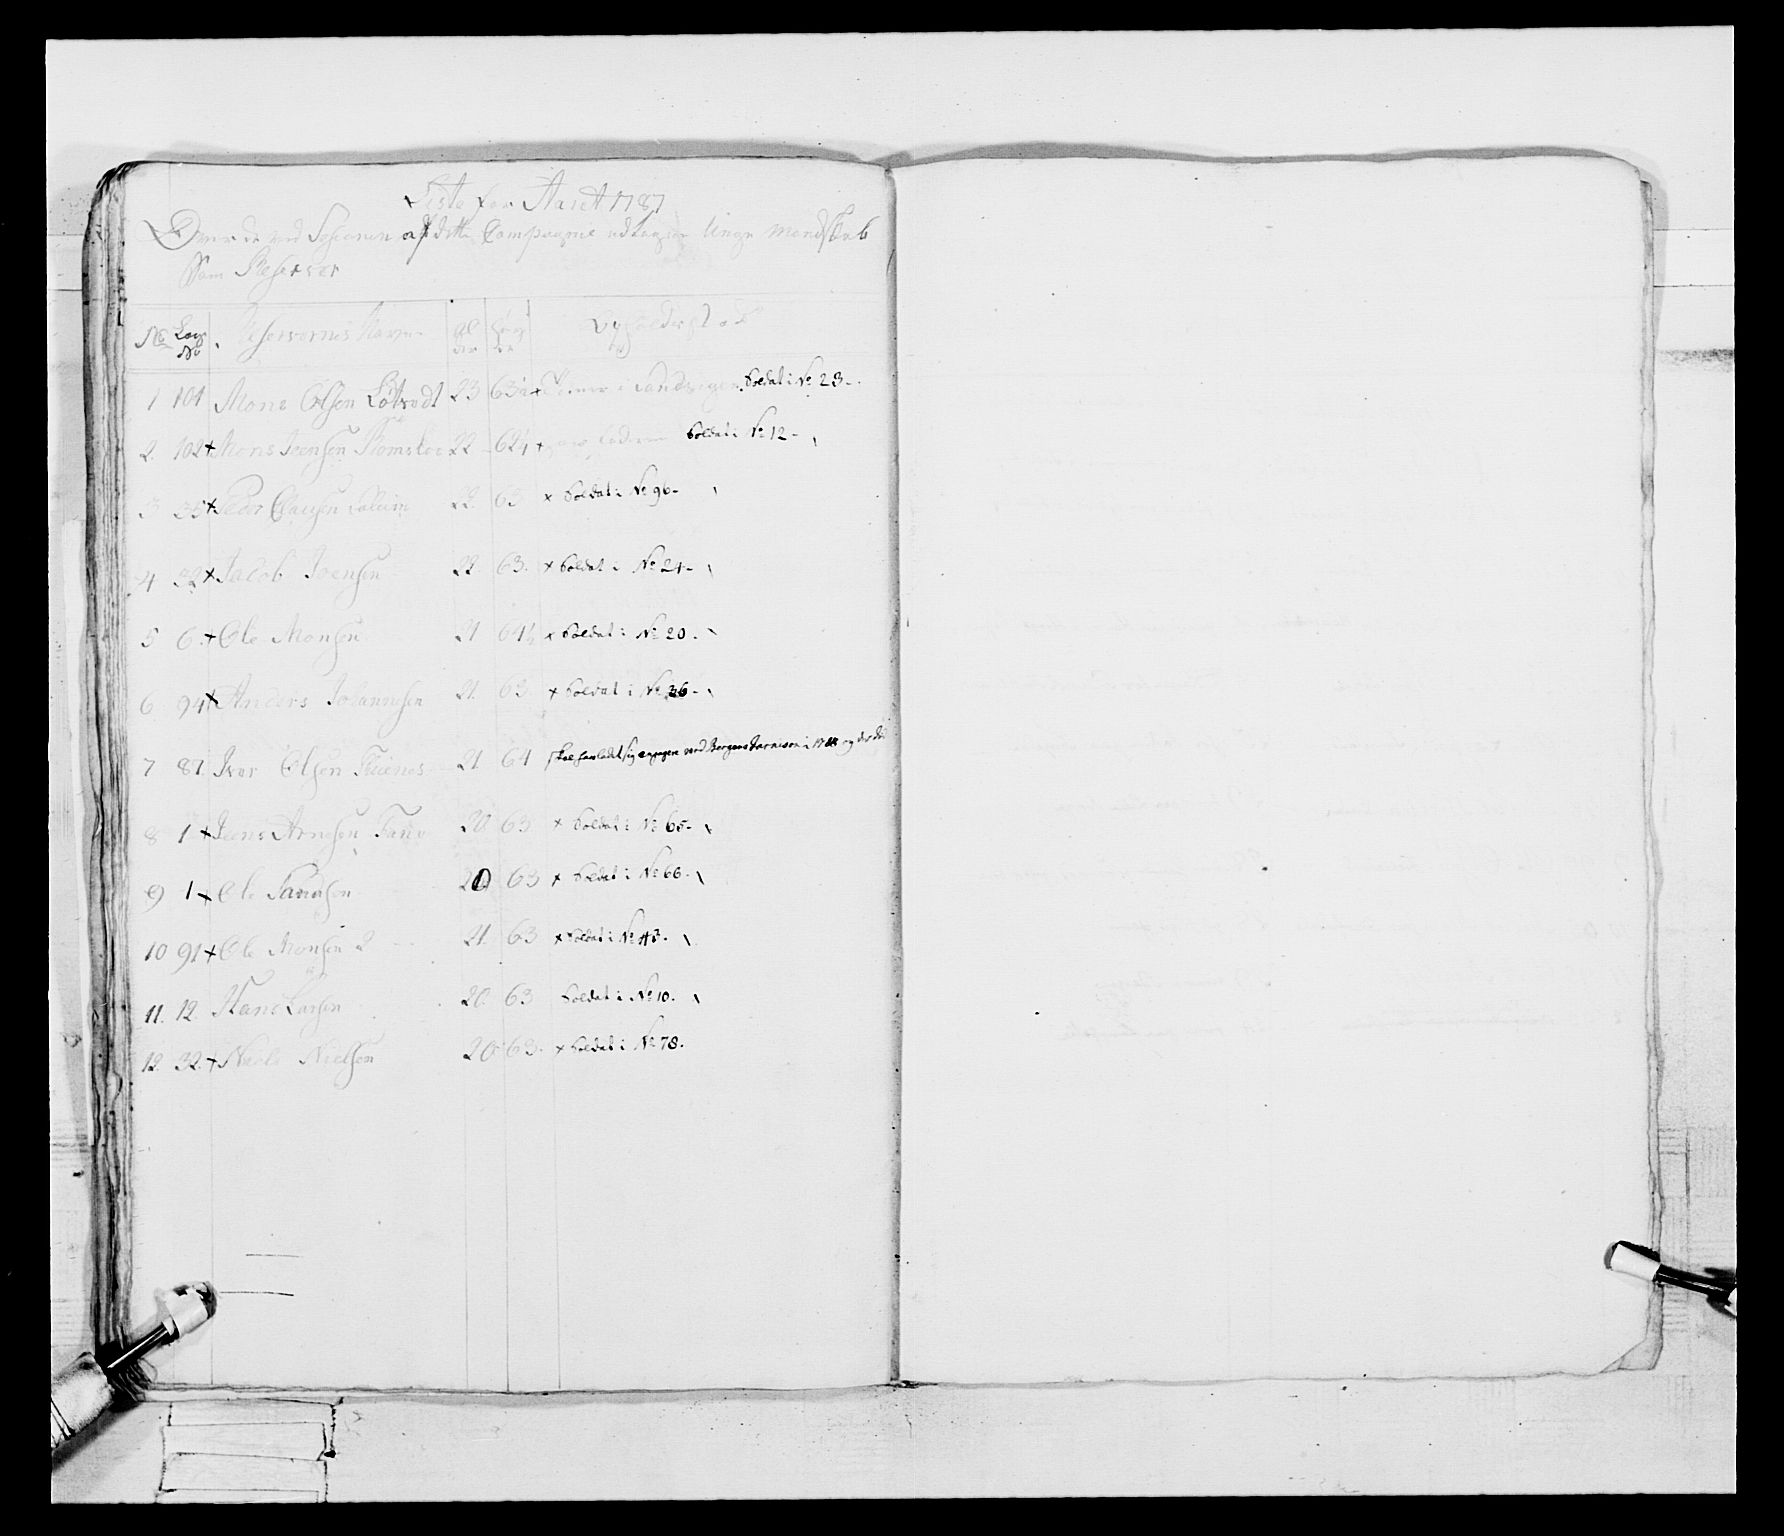 Liste for Aaret 1787
Over de ved Sessionen af dette Compagnie udtagne Unge Mandskab
Som Reserver
No Lægs No Reservernes Navne Al der Høy de Opholdsted
1 101 Mons Olsen 23 63 Tiener i Sandvigen Soldat i No 23.
2. 102 + Mons Joensen 22 62½ + Soldat i No 12.
3 35 + Peder Clausen 22. 63 + Soldat i No 96.
4 32 + Jacob Joensen 22. 63. + Soldat i No 24.
5 6. + Ole Monsen 21 64½ + Soldat i No 20.
6 94 + Anders Johannesen 21. 63 + Soldat i No 36.
7 87. Iver Olsen 21. 64 skal have ladet sig engagere ved Bergens Garnison i 1788 og der død
8 1 + Jens Arnesen Fane 20. 63 + Soldat i No 65.
9 1 + Ole 20 63 + Soldat i No 66.
10 91 + Ole Monsen 2 21. 63 + Soldat i No 43.
11. 12. Hans Larsen 20. 63 Soldat i No 10.
12. 32. + Niels Nielsen 20 63. + Soldat i No 78.